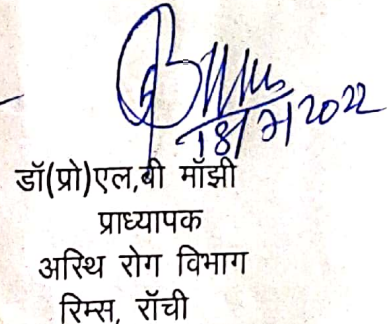 18/7/2022
डॉ(प्रो)एल,बी माँझी
प्राध्यापक
अस्थि रोग विभाग
रिम्स, राँची